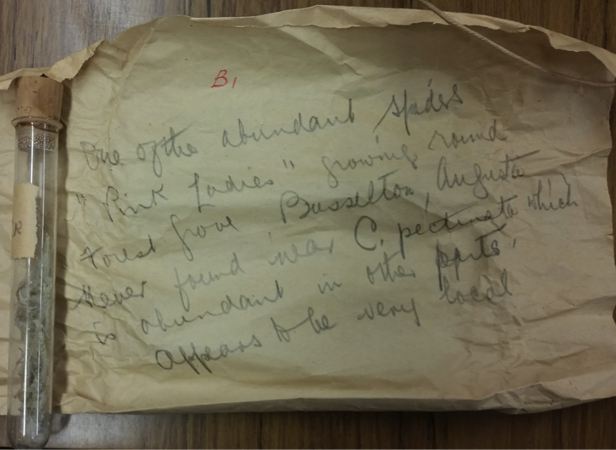 B1
One of the abundant spiders
"Pink Ladies" growing round
Forest Grove, Busselton, Augusta
Never found near C. pectinata which
is abundant in other parts,
appears to be very local
R